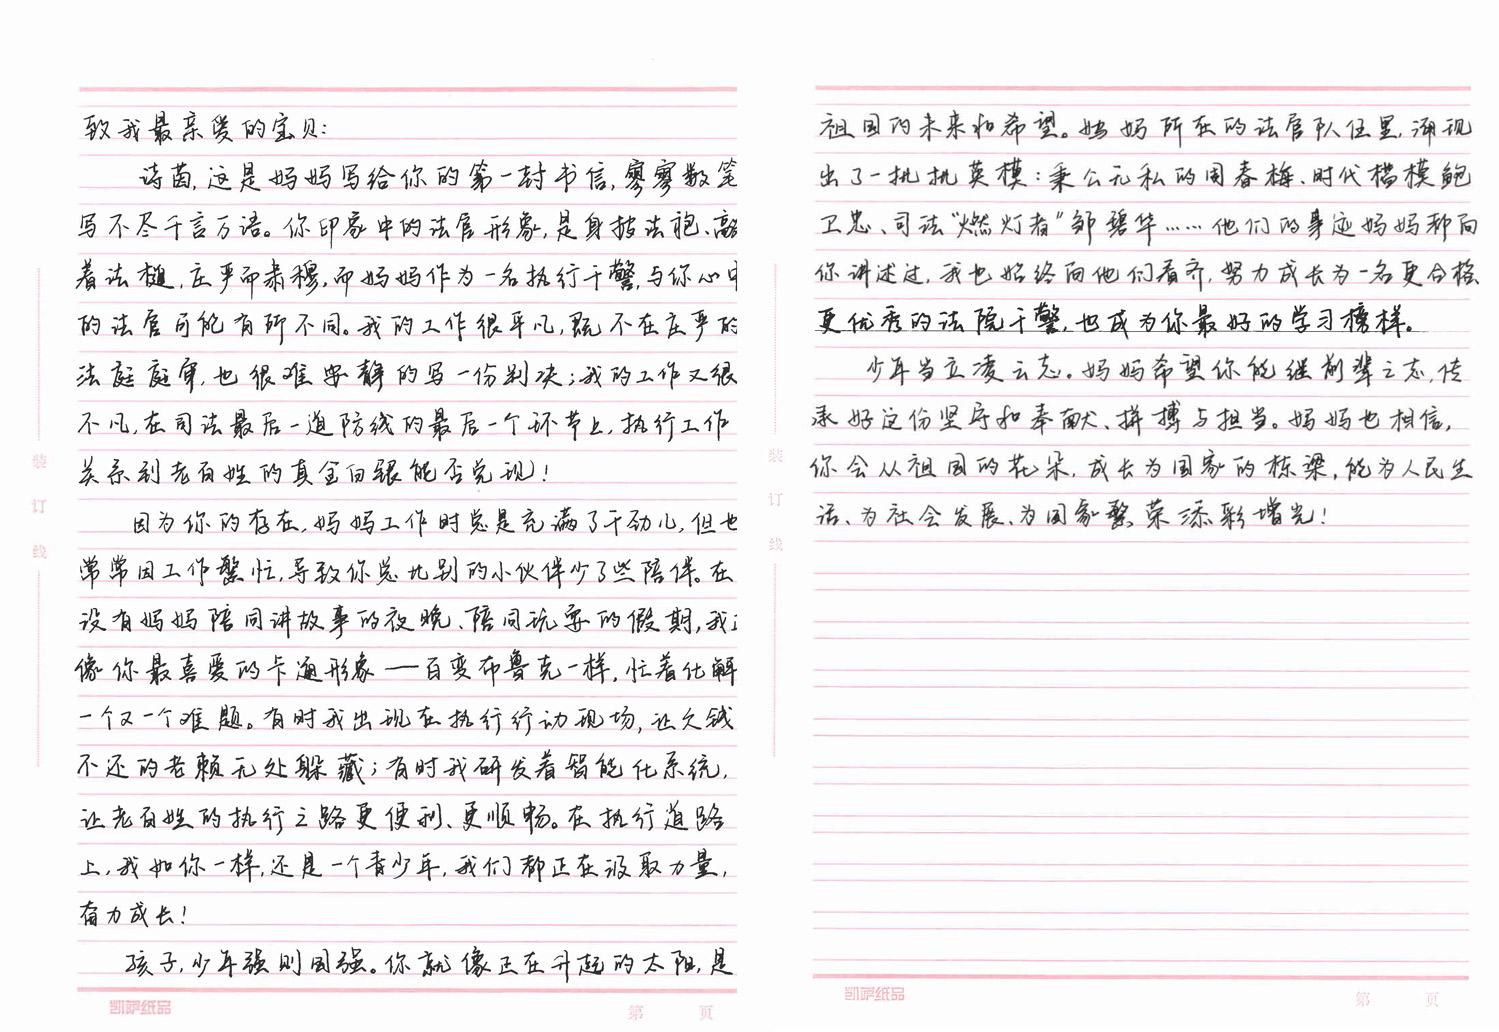 致我最亲爱的宝贝：
诗茵，这是妈妈写给你的第一封书信，寥寥数笔
写不尽千言万语。你印象中的法官形象，是身披法袍、敲
着法槌，庄严而肃穆，而妈妈作为一名执行干警，与你心中
的法官可能有所不同。我的工作很平凡，既不在庄严的
法庭庭审，也很难安静的写一份判决；我的工作又很
不凡，在司法最后一道防线的最后一个环节上，执行工作
关系到老百姓的真金白银能否兑现！
因为你的存在，妈妈工作时总是充满了干劲儿，但也
常常因工作繁忙，导致你总比别的小伙伴少了些陪伴。在
没有妈妈陪同讲故事的夜晚、陪同玩耍的假期，我正
像你最喜爱的卡通形象——百变布鲁克一样，忙着化解
一个又一个难题。有时我出现在执行行动现场，让欠钱
不还的老赖无处躲藏；有时我研发着智能化系统，
让老百姓的执行之路更便利、更顺畅。在执行道路
上，我如你一样，还是一个青少年，我们都正在汲取力量，
奋力成长！
孩子，少年强则国强。你就像正在升起的太阳，是
凯萨纸品
第 页
装
订
线
祖国的未来和希望。妈妈所在的法官队伍里，涌现
出了一批批英模：秉公无私的周春梅、时代楷模鲍
卫忠、司法“燃灯者”邹碧华……他们的事迹妈妈都向
你讲述过，我也始终向他们看齐，努力成长为一名更合格、
更优秀的法院干警，也成为你最好的学习榜样。
少年当立凌云志。妈妈希望你能继前辈之志，传
承好这份坚守和奉献、拼搏与担当。妈妈也相信，
你会从祖国的花朵，成长为国家的栋梁，能为人民生
活、为社会发展、为国家繁荣添彩增光！
凯萨纸品
第 页
装
订
线